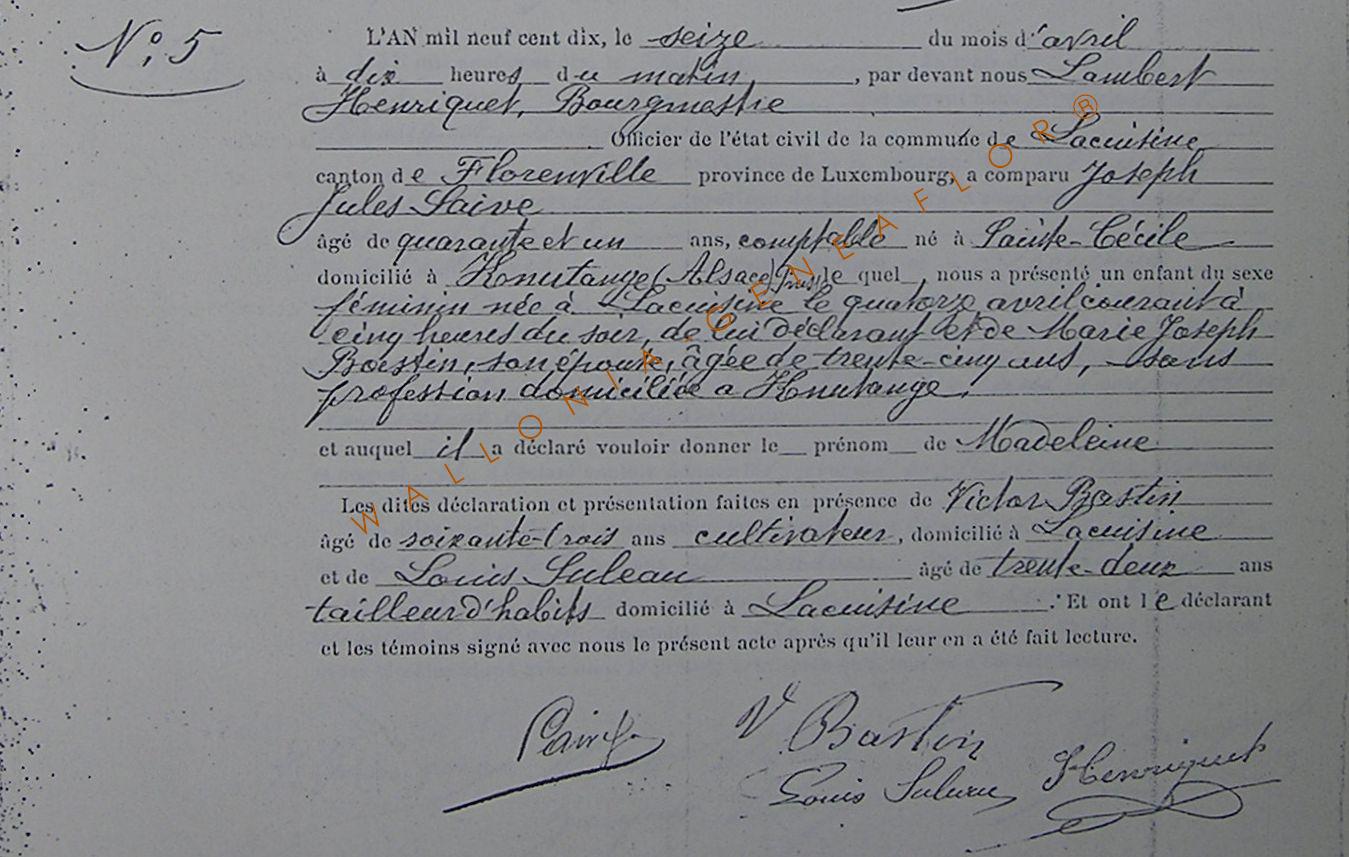 N° 5
L'AN mil neuf cent dix, le seize du mois d'avril
à dix heures du matin, par devant nous Lambert
Henriquet, Bourgmestre
Officier de l'état civil de la commune de Lacuisine
canton de Florenville province de Luxembourg, a comparu Joseph
Jules Saive
âgé de quarante et un ans, comptable né à Sainte-Cécile
domicilié à Knutange (Alsace) le quel nous a présenté un enfant du sexe
féminin née à Lacuisine le quatorze avril courant à
cinq heures du soir, de lui déclarant et de Marie Joseph
Bastin, son épouse, âgée de trente-cinq ans, sans
profession domiciliée a Knutange.
et auquel il a déclaré vouloir donner le prénom de Madeleine
Les dites déclaration et présentation faites en présence de Victor Bastin
âgé de soixante-trois ans cultivateur, domicilié à Lacuisine
et de Louis Suleau âgé de trente-deux ans
tailleur d'habits domicilié à Lacuisine. Et ont le déclarant
et les témoins signé avec nous le présent acte après qu'il leur en a été fait lecture.
V Bastin
Louis Suleau Henriquet
WALLONIA-GENEAFLOR®